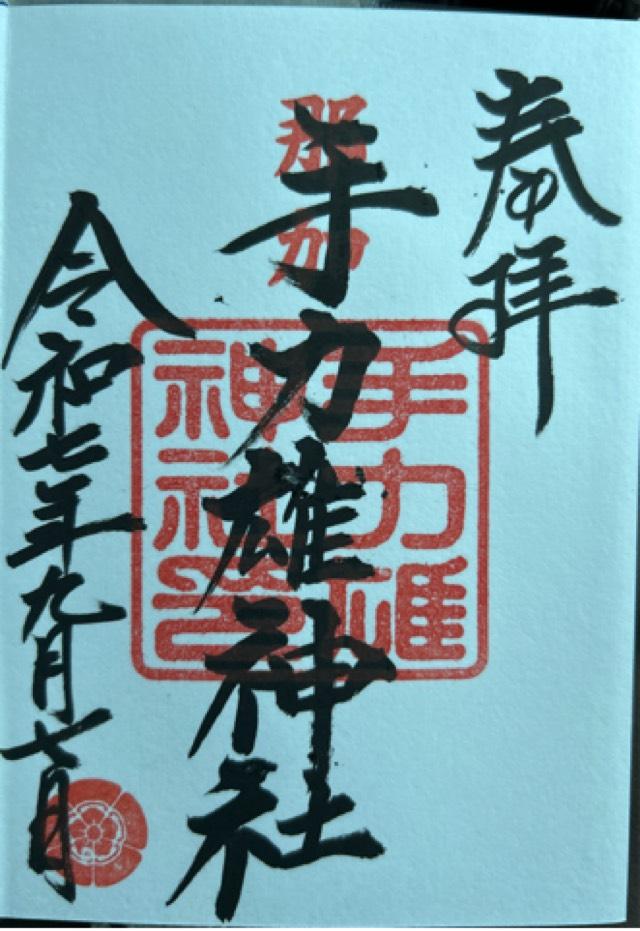 奉拝
那加
手力雄神社
手力雄
神社
令和七年九月七日